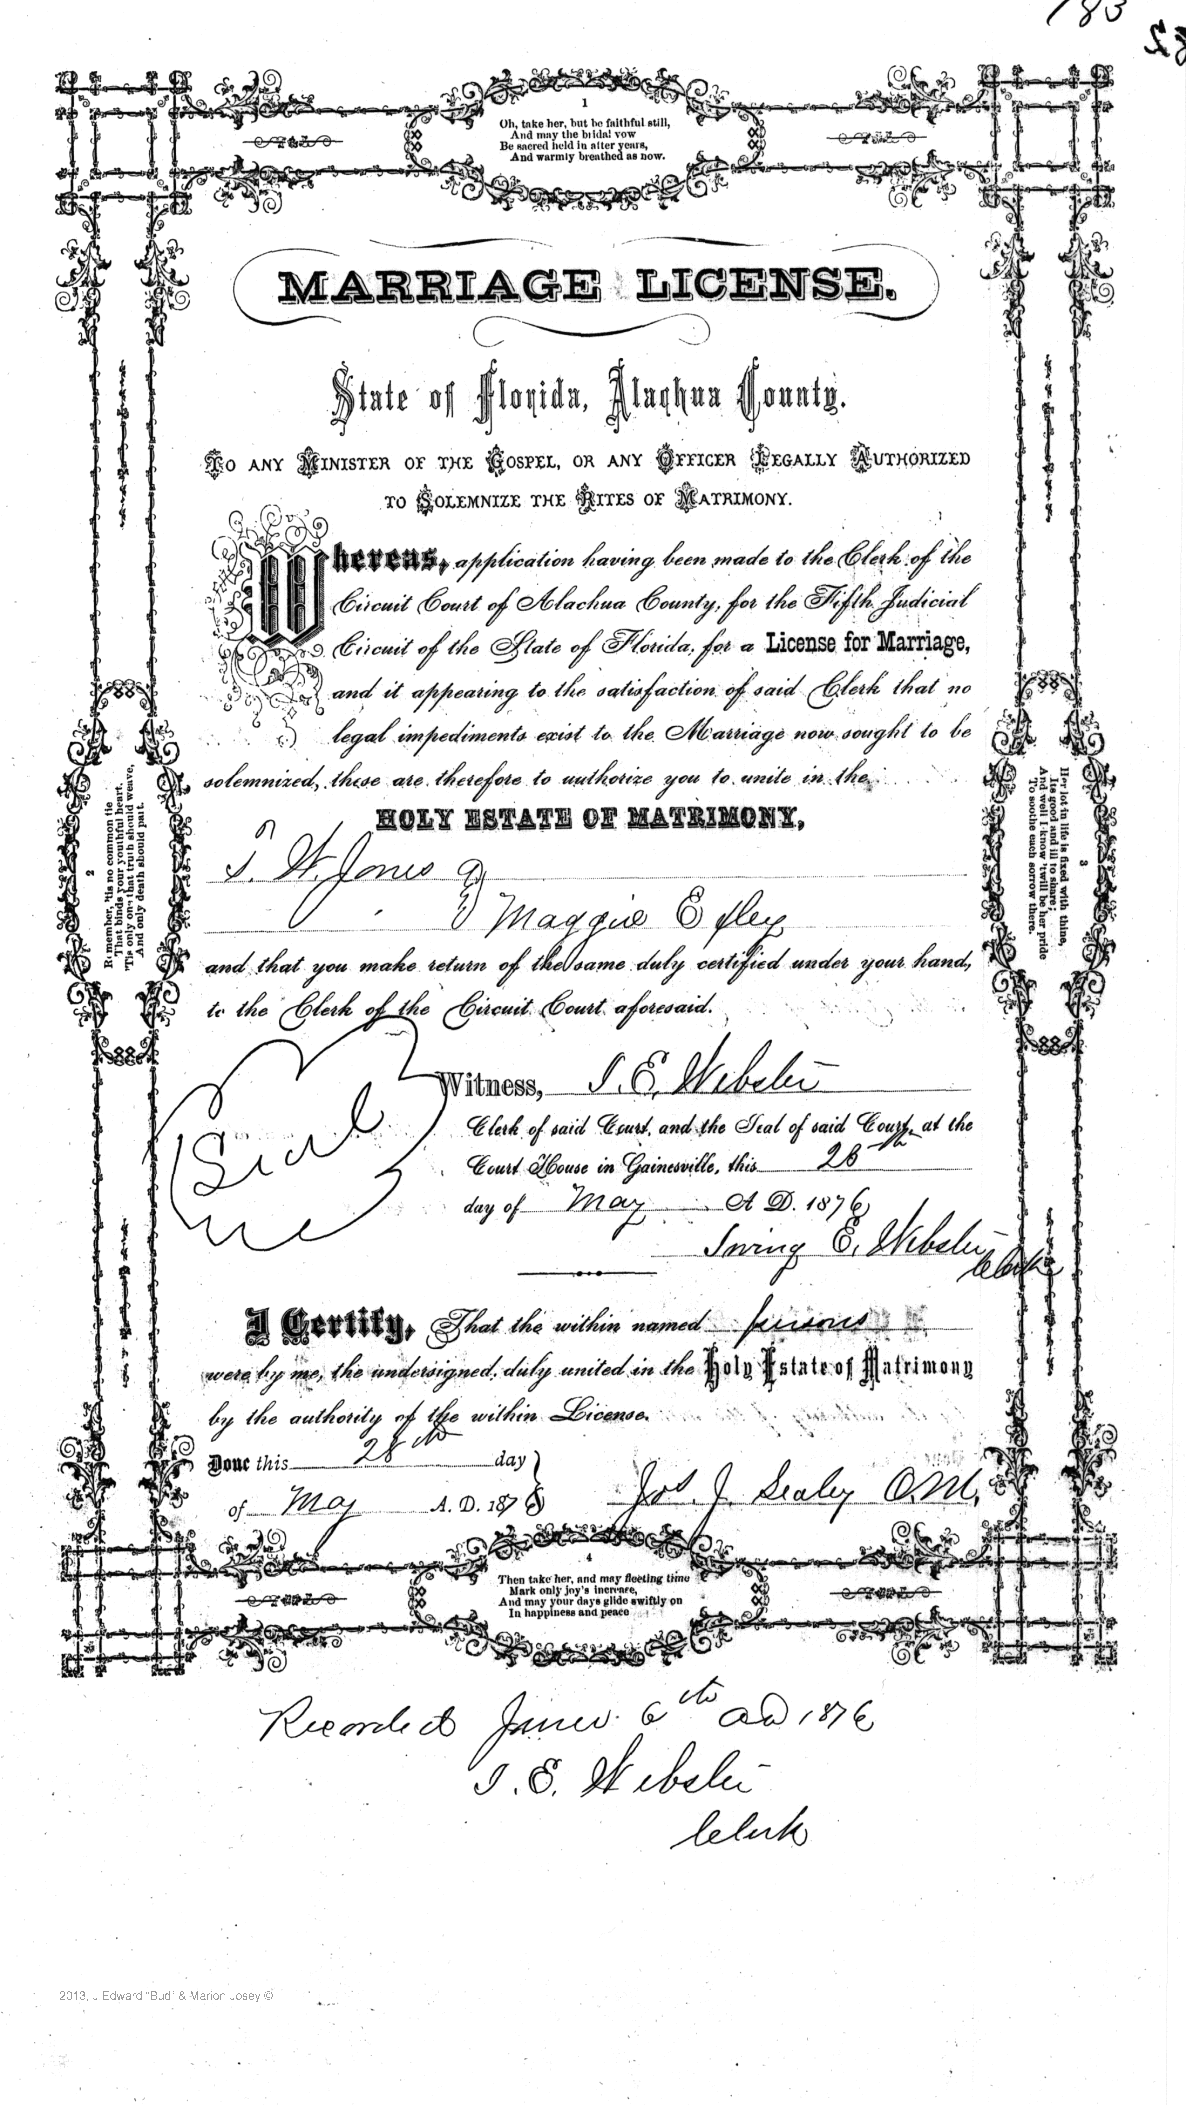 183
82
1
Oh, take her, but be faithful still,
And may the bridal vow
Be sacred held in after years,
And warmly breathed as now.
MARRIAGE LICENSE.
State of Florida, Alachua County.
TO ANY MINISTER OF THE GOSPEL, OR ANY OFFICER LEGALLY AUTHORIZED
TO SOLEMNIZE THE RITES OF MATRIMONY.
Whereas, application having been made to the Clerk of the
Circuit Court of Alachua County, for the Fifth Judicial
Circuit of the State of Florida, for a License for Marriage,
and it appearing to the satisfaction of said Clerk that no
legal impediments exist to the Marriage now sought to be
solemnized, these are therefore to authorize you to unite in the
HOLY ESTATE OF MATRIMONY,
T. W. Jones &
Maggie Exley
and that you make return of the same duly certified under your hand,
to the Clerk of the Circuit Court aforesaid.
2
Remember, 'tis no common tie
That binds your youthful heart.
'Tis only one that truth should weave,
And only death should part.
3
Her lot in life is fixed with thine,
Its good and ill to share;
And well I know 'twill be her pride
To soothe each sorrow there.
Seal
Witness, I. E. Webster
Clerk of said Court, and the Seal of said Court, at the
Court House in Gainesville, this 28th
day of May A. D. 1876
Irving E. Webster
Clerk
I Certify, That the within named persons
were by me, the undersigned, duly united in the Holy Estate of Matrimony
by the authority of the within License.
Done this 28th day
of May A. D. 1876
Jos. J. Sealey O.M.
4
Then take her, and may fleeting time
Mark only joy's increase,
And may your days glide swiftly on
In happiness and peace
Recorded June 6th AD 1876
I. E. Webster
Clerk
2013, J Edward "Bud" & Marion Josey ©